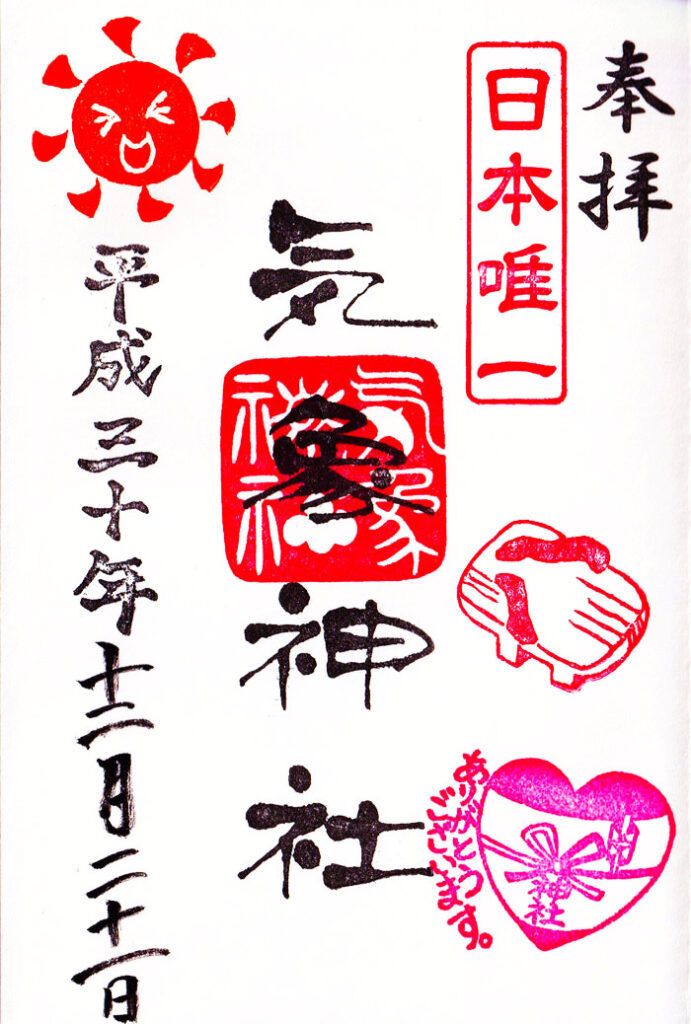 奉拝
日本唯一
気象神社
気象神社
ありがとう
ございます。
神社
平成三十年十二月二十一日